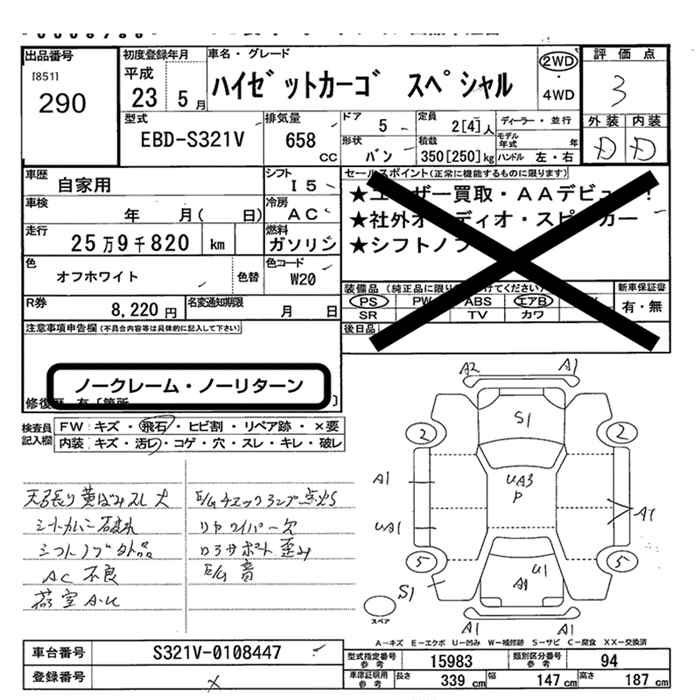 出品番号
[851]
290
初度登録年月
平成
23 5 月
車名・グレード
ハイゼットカーゴ スペシャル
2WD
・
4WD
評価点
3
外装 内装
D D
型式
EBD-S321V
排気量
658
CC
ドア
5
定員
2[4]人
ディーラー・並行
形状
バン
積載
350[250]kg
モデル
年式 年
ハンドル 左・右
車歴
自家用
シフト
I5
車検
年 月( 日)
冷房
AC
走行
25万9千820 km
燃料
ガソリン
色
オフホワイト
色替
色コード
W20
R券
8,220 円
名変通知期限
月 日
セールスポイント(正常に機能するものに限ります)
買取・AAデビュー!
★社外オーディオ・スピーカー
★シフトノブ
装備品
PS PW ABS エアB
SR TV カワ
新車保証書
有・無
後日品
注意事項申告欄(不具合内容等は具体的に記入して下さい)
ノークレーム・ノーリターン
検査員
記入欄
FW キズ・飛石・ヒビ割・リペア跡・×要
内装 キズ・汚レ・コゲ・穴・スレ・キレ・破レ
天張り黄ばみスレ大
シートカバー破れ
シフトノブ外品
AC不良
荷室A・U
E/Gチェックランプ点灯S
リヤワイパー欠
ロアサポート歪み
E/G音
A2 A1
S1
2 2
A1
UA3
P
UA1
A1
5 5
S1
U1
A1
A1 A1
スペア
A-キズ E-エクボ U-凹み W-補修跡 S-サビ C-腐食 XX-交換済
車台番号
S321V-0108447
登録番号
×
型式指定番号
参考
15983
類別区分番号
参考
94
車検証明用
参考
長さ
339 cm
幅
147 cm
高さ
187 cm